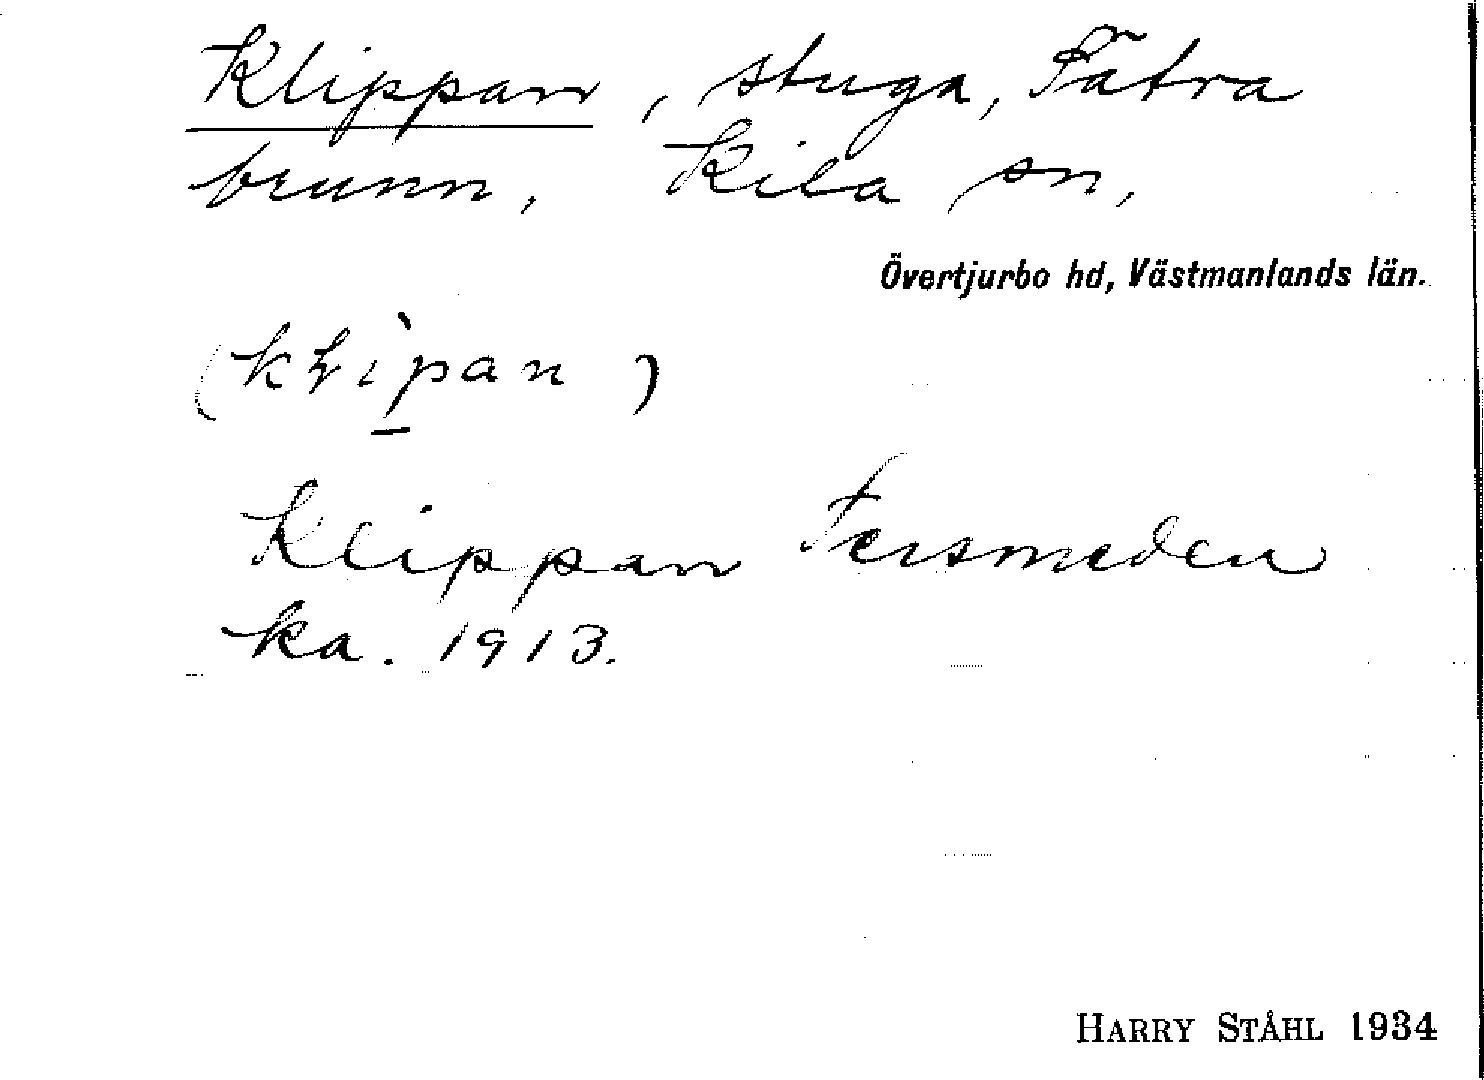 Klippan, stuga, Sätra
brunn, Kila sn,
Övertjurbo hd, Västmanlands län.
(kłìp̱an)
Klippan Fersmeden
ka. 1913.
HARRY STÅHL 1934